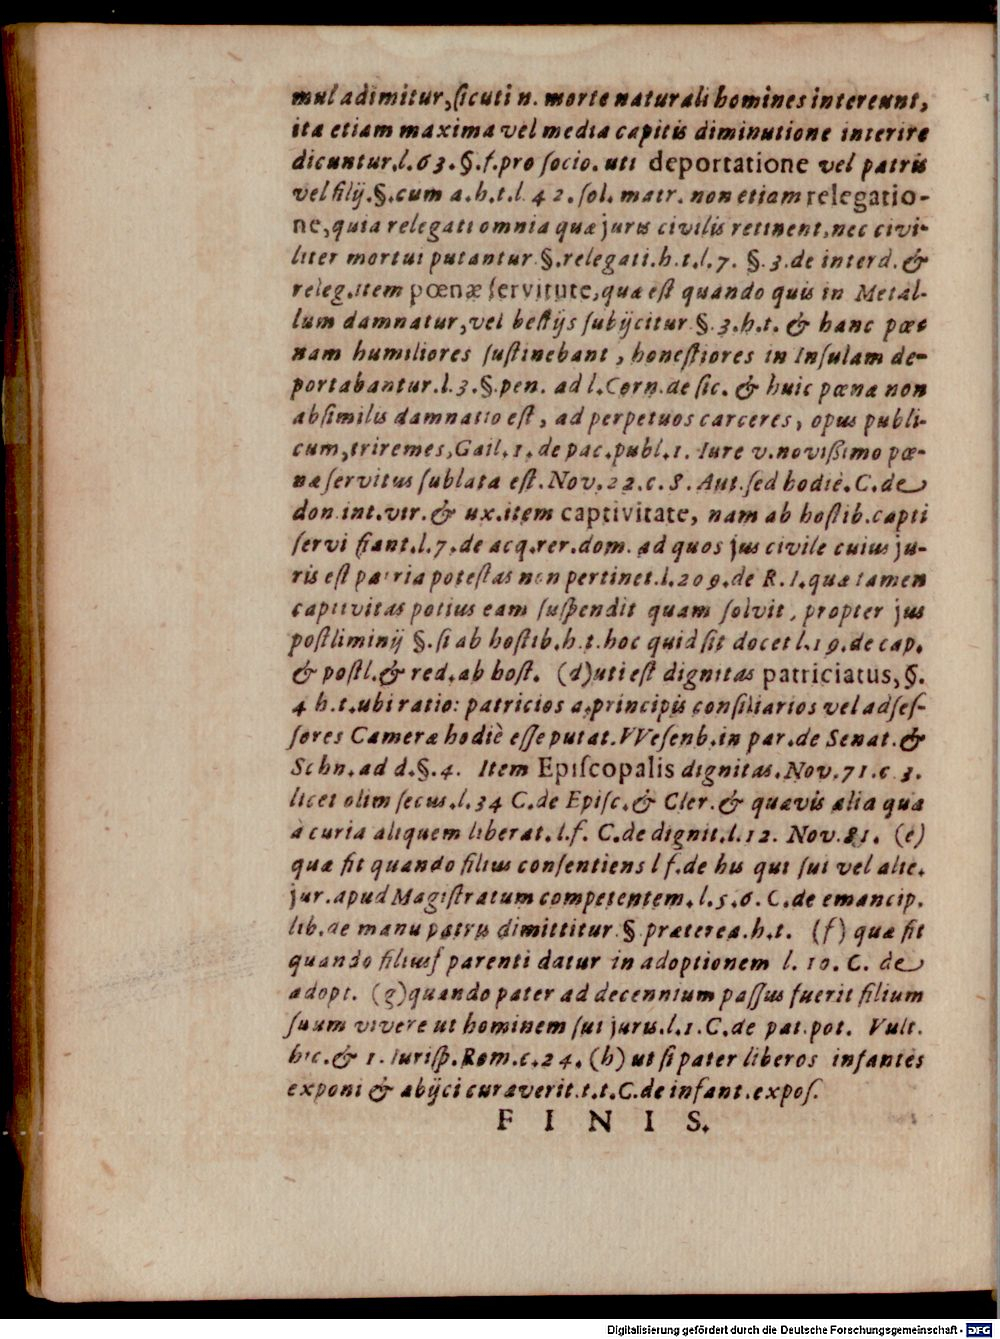 mul adimitur, ſicuti n. morte naturali homines intereunt,
ita etiam maxima vel media capitis diminutione interire
dicuntur. l. 63. §. f. pro ſocio. uti deportatione vel patris
vel filij. §. cum a. h. t. l. 42. ſol. matr. non etiam relegatio-
ne, quia relegati omnia quæ juris civilis retinent, nec civi-
liter mortui putantur. §. relegati. h. t. l. 7. §. 3. de interd. &
releg. item pœnæ ſervitute, quæ eſt quando quis in Metal-
lum damnatur, vel beſtijs ſubijcitur §. 3. h. t. & hanc pœe
nam humiliores ſuſtinebant, honeſtiores in Inſulam de-
portabantur. l. 3. §. pen. ad l. Corn. de ſic. & huic pœnæ non
abſimilis damnatio eſt, ad perpetuos carceres, opus publi-
cum, triremes, Gail. 1. de pac. publ. 1. Iure v. noviſſimo pœ-
næ ſervitus ſublata eſt. Nov. 22. c. 8. Aut. ſed hodiè. C. de
don. int. vir. & ux. item captivitate, nam ab hoſtib. capti
ſervi fiant. l. 7. de acq. rer. dom. ad quos jus civile cuius ju-
ris eſt patria poteſtas non pertinet. l. 209. de R. I. quæ tamen
captivitas potius eam ſuſpendit quam ſolvit, propter jus
poſtliminij §. ſi ab hoſtib. h. t. hoc quid ſit docet l. 19. de cap.
& poſtl. & red. ab hoſt. (d) uti eſt dignitas patriciatus, §.
4 h. t. ubi ratio: patricios a. principis conſiliarios vel adſeſ-
ſores Cameræ hodiè eſſe putat. VVeſenb. in par. de Senat. &
Schn. ad d. §. 4. Item Epiſcopalis dignitas. Nov. 71. c 3.
licet olim ſecus. l. 34 C. de Epiſc. & Cler. & quævis alia quæ
à curia aliquem liberat. l. f. C. de dignit. l. 12. Nov. 81. (e)
quæ fit quando filius conſentiens l f. de his qui ſui vel alie.
jur. apud Magiſtratum competentem. l. 5. 6. C. de emancip.
lib. de manu patris dimittitur §. præterea. h. t. (f) quæ fit
quando filiuſ parenti datur in adoptionem l. 10. C. de
adopt. (g) quando pater ad decennium paſſus fuerit filium
ſuum vivere ut hominem ſui juris. l. 1. C. de pat. pot. Vult.
hic. & 1. Iuriſp. Rom. c. 24. (h) ut ſi pater liberos infantes
exponi & abijci curaverit. t. t. C. de infant. expoſ.
F I N I S.
Digitalisierung gefördert durch die Deutsche Forschungsgemeinschaft - DFG